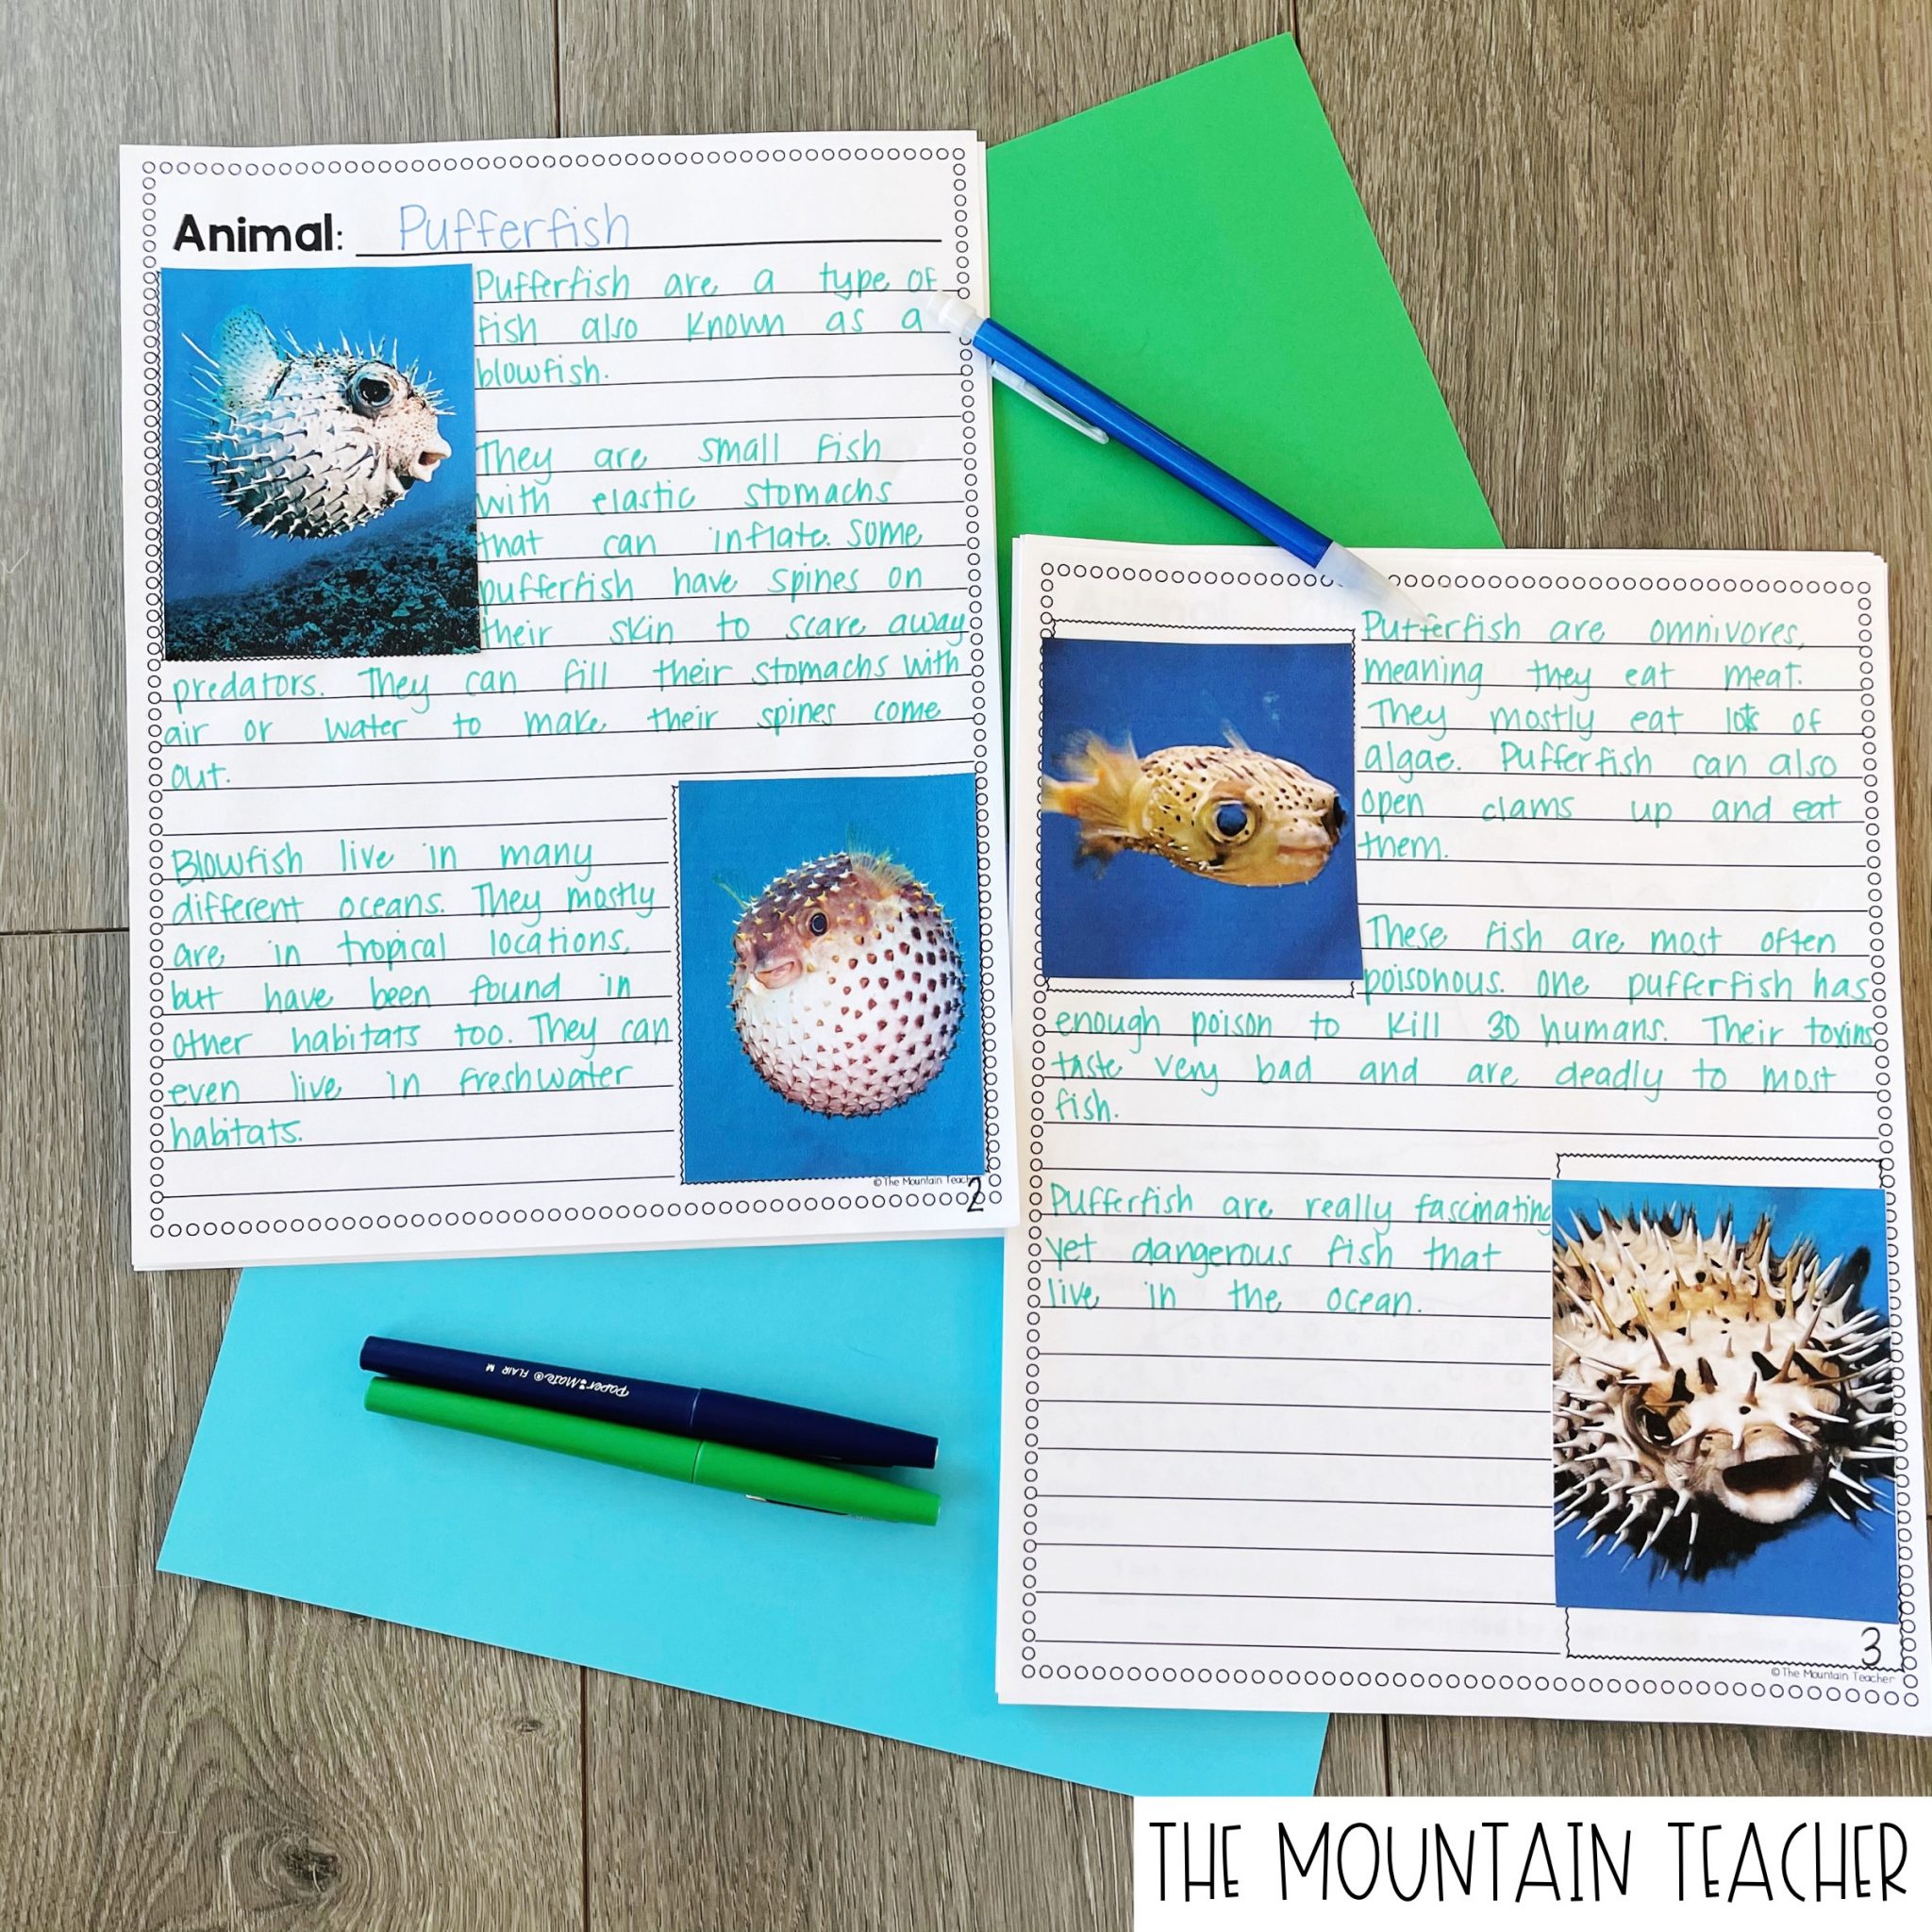 Animal: Pufferfish
Pufferfish are a type of
fish also known as a
blowfish.
They are small fish
with elastic stomachs
that can inflate. Some
pufferfish have spines on
their skin to scare away
predators. They can fill their stomachs with
air or water to make their spines come
out.
Blowfish live in many
different oceans. They mostly
are in tropical locations,
but have been found in
other habitats too. They can
even live in freshwater
habitats.
©The Mountain Teach
2
Pufferfish are omnivores,
meaning they eat meat.
They mostly eat lots of
algae. Pufferfish can also
open clams up and eat
them.
These fish are most often
poisonous. One pufferfish has
enough poison to kill 30 humans. Their toxins
taste very bad and are deadly to most
fish.
Pufferfish are really fascinating
yet dangerous fish that
live in the ocean.
3
©The Mountain Teacher
Paper Mate ® FLAIR M
THE MOUNTAIN TEACHER